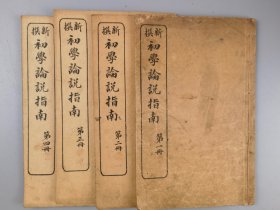 新撰
初學論説指南
第一冊
新撰
初學論説指南
第二冊
新撰
初學論説指南
第三冊
新撰
初學論説指南
第四冊